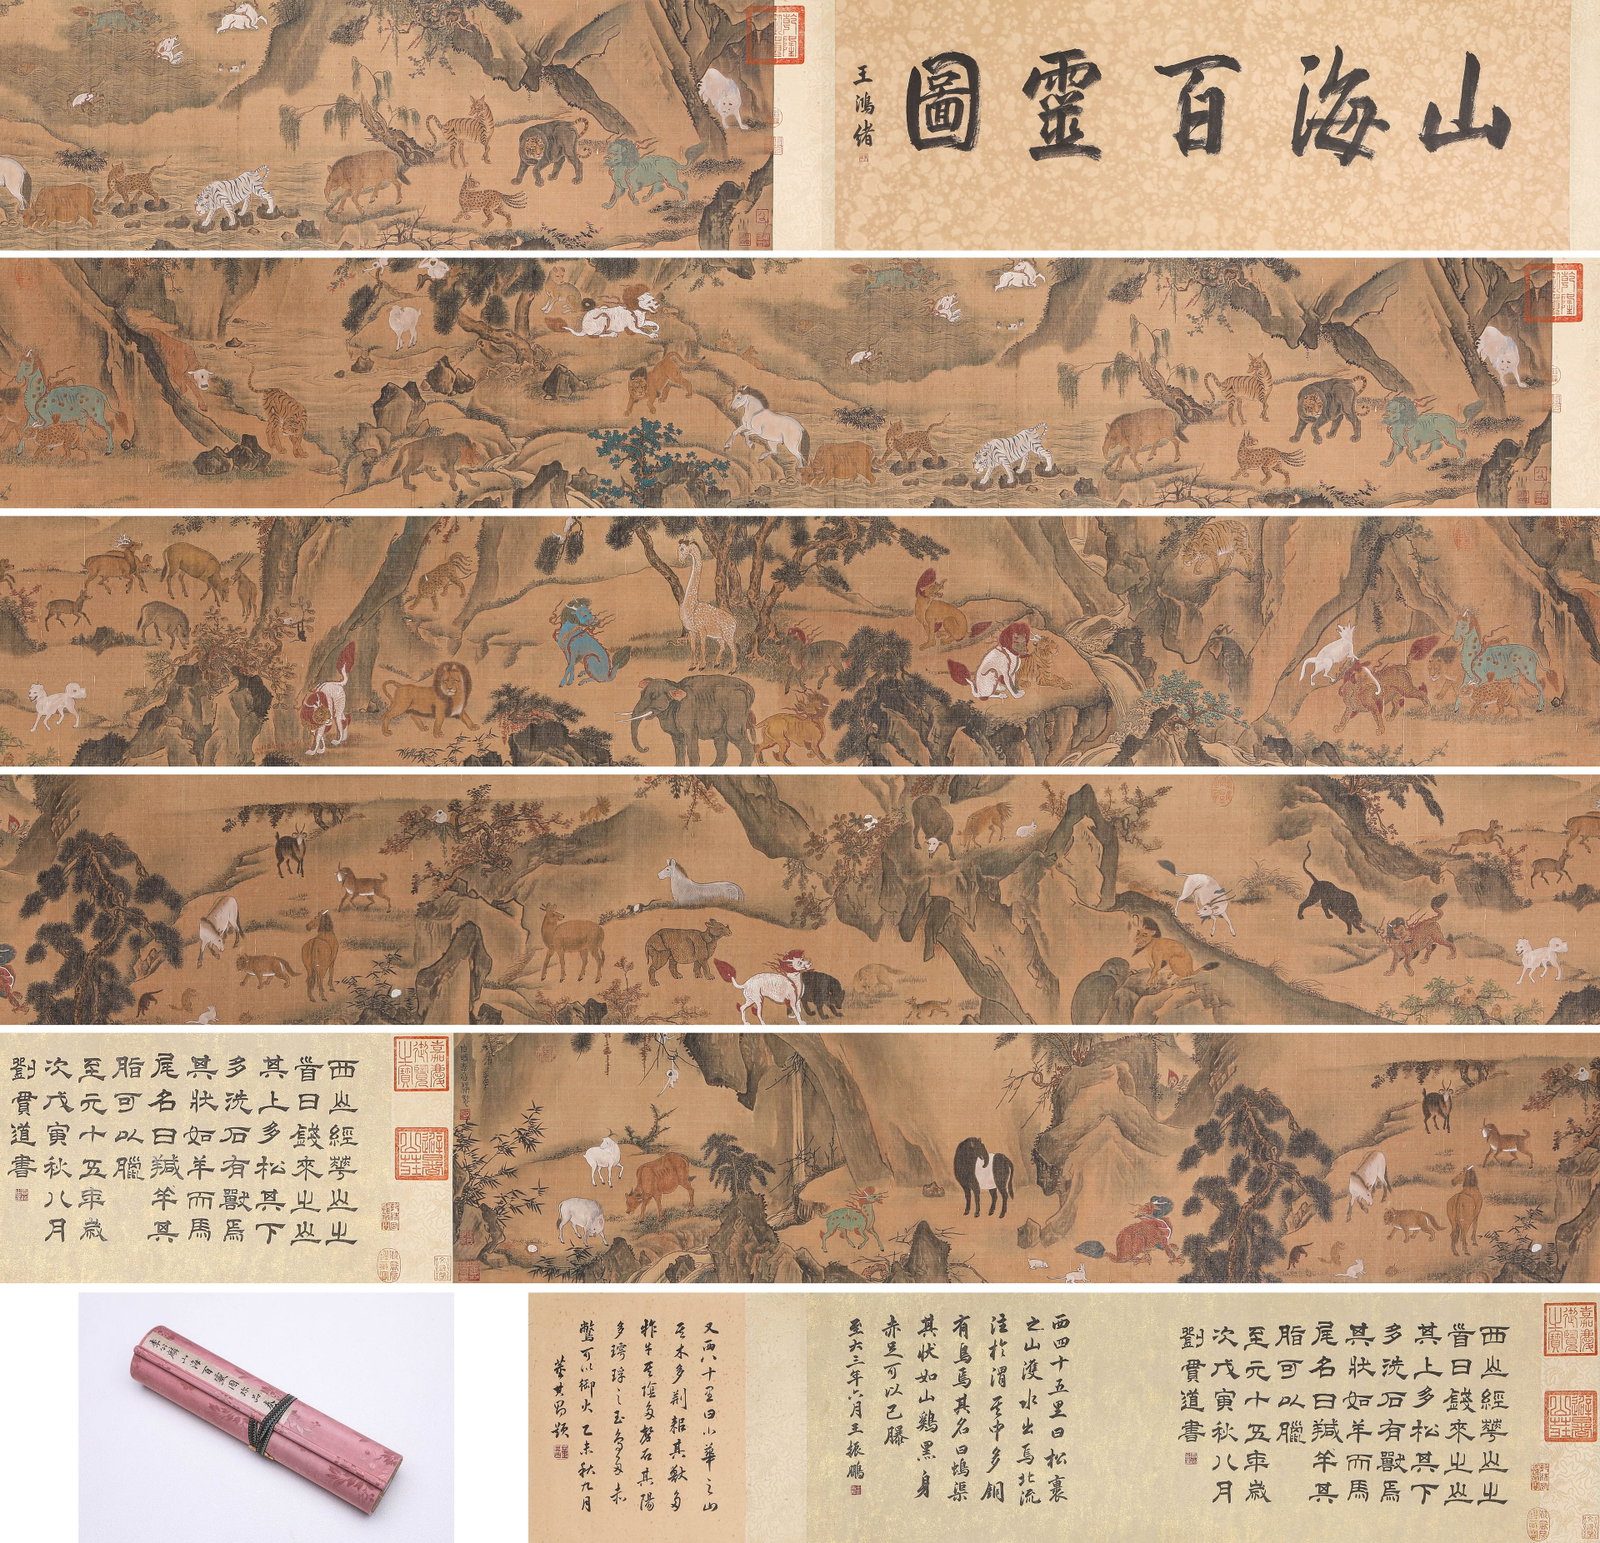 山海百靈圖
王鴻緒
乾隆
乾隆
西山經華山之
首曰錢來之山
其上多松其下
多洗石有獸焉
其狀如羊而馬
尾名曰羬羊其
脂可以臘
至元十五年歲
次戊寅秋八月
劉貫道書
嘉慶御覽之寶
避暑山莊
嘉慶御覽之寶
避暑山莊
西山經華山之
首曰錢來之山
其上多松其下
多洗石有獸焉
其狀如羊而馬
尾名曰羬羊其
脂可以臘
至元十五年歲
次戊寅秋八月
劉貫道書
西四十五里曰松裹
之山濩水出焉北流
注於渭其中多銅
有鳥焉其名曰螐渠
其狀如山鷄黑身
赤足可以已䐨
至大三年六月王振鵬
又西八十里曰小華之山
其木多荊杞其獸多
㸲牛其陰多磬石其陽
多㻬琈之玉鳥多赤
鷩可以御火乙未秋九月
董其昌題